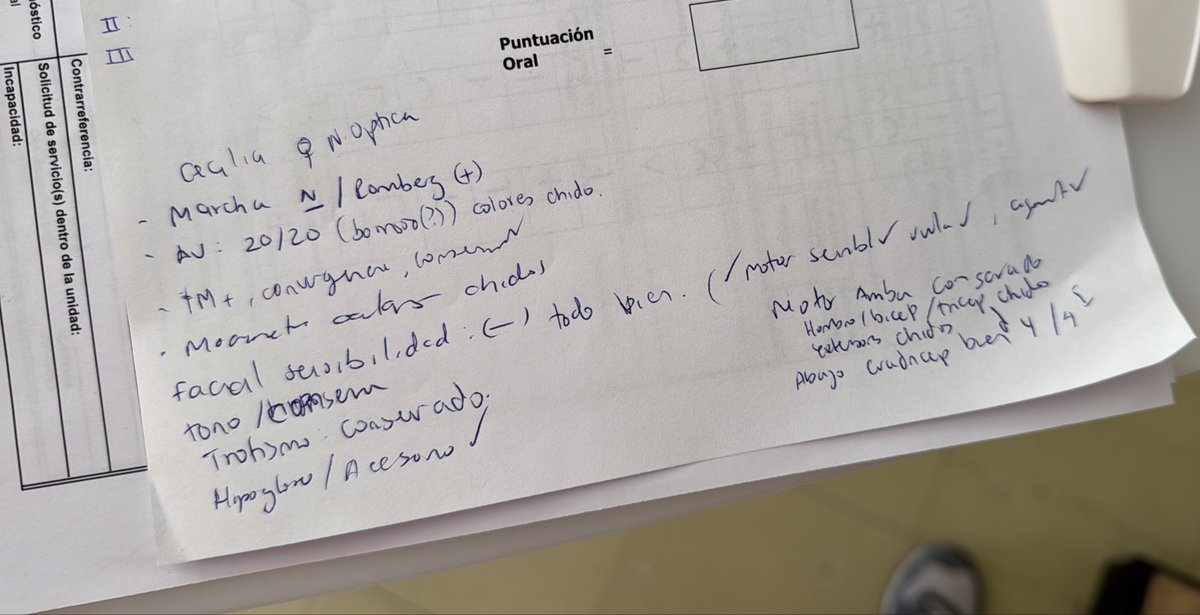 óstico
Contrarreferencia:
Solicitud de servicio(s) dentro de la unidad:
Incapacidad:
II:
III
Puntuación
Oral =
Cecilia ♀ N. Optica
- Marcha N / Romberg (+)
- AV: 20/20 (borroso(?)) colores chido.
chidos
facial sensibilidad: (-) todo bien. (✓ motor
tono /
Trofismo conservado.
Hipogloso / Acesorio ✓
Motor Arriba Conservado
Hombro / bicep / tricep chido
extensores chidos
Abajo cuadricep bien 4/4